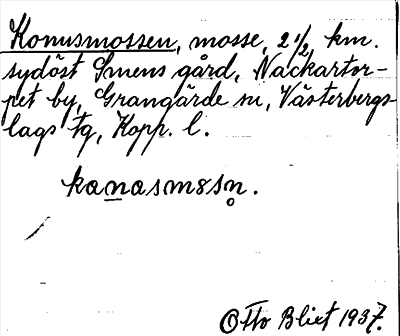 Konusmossen, mosse, 2 1/2 km.
sydöst Smens gård, Nackartor-
pet by, Grangärde sn, Västerbergs-
lags tg, Kopp. l.
kanasmɞsn̥.
Otto Blixt 1937.